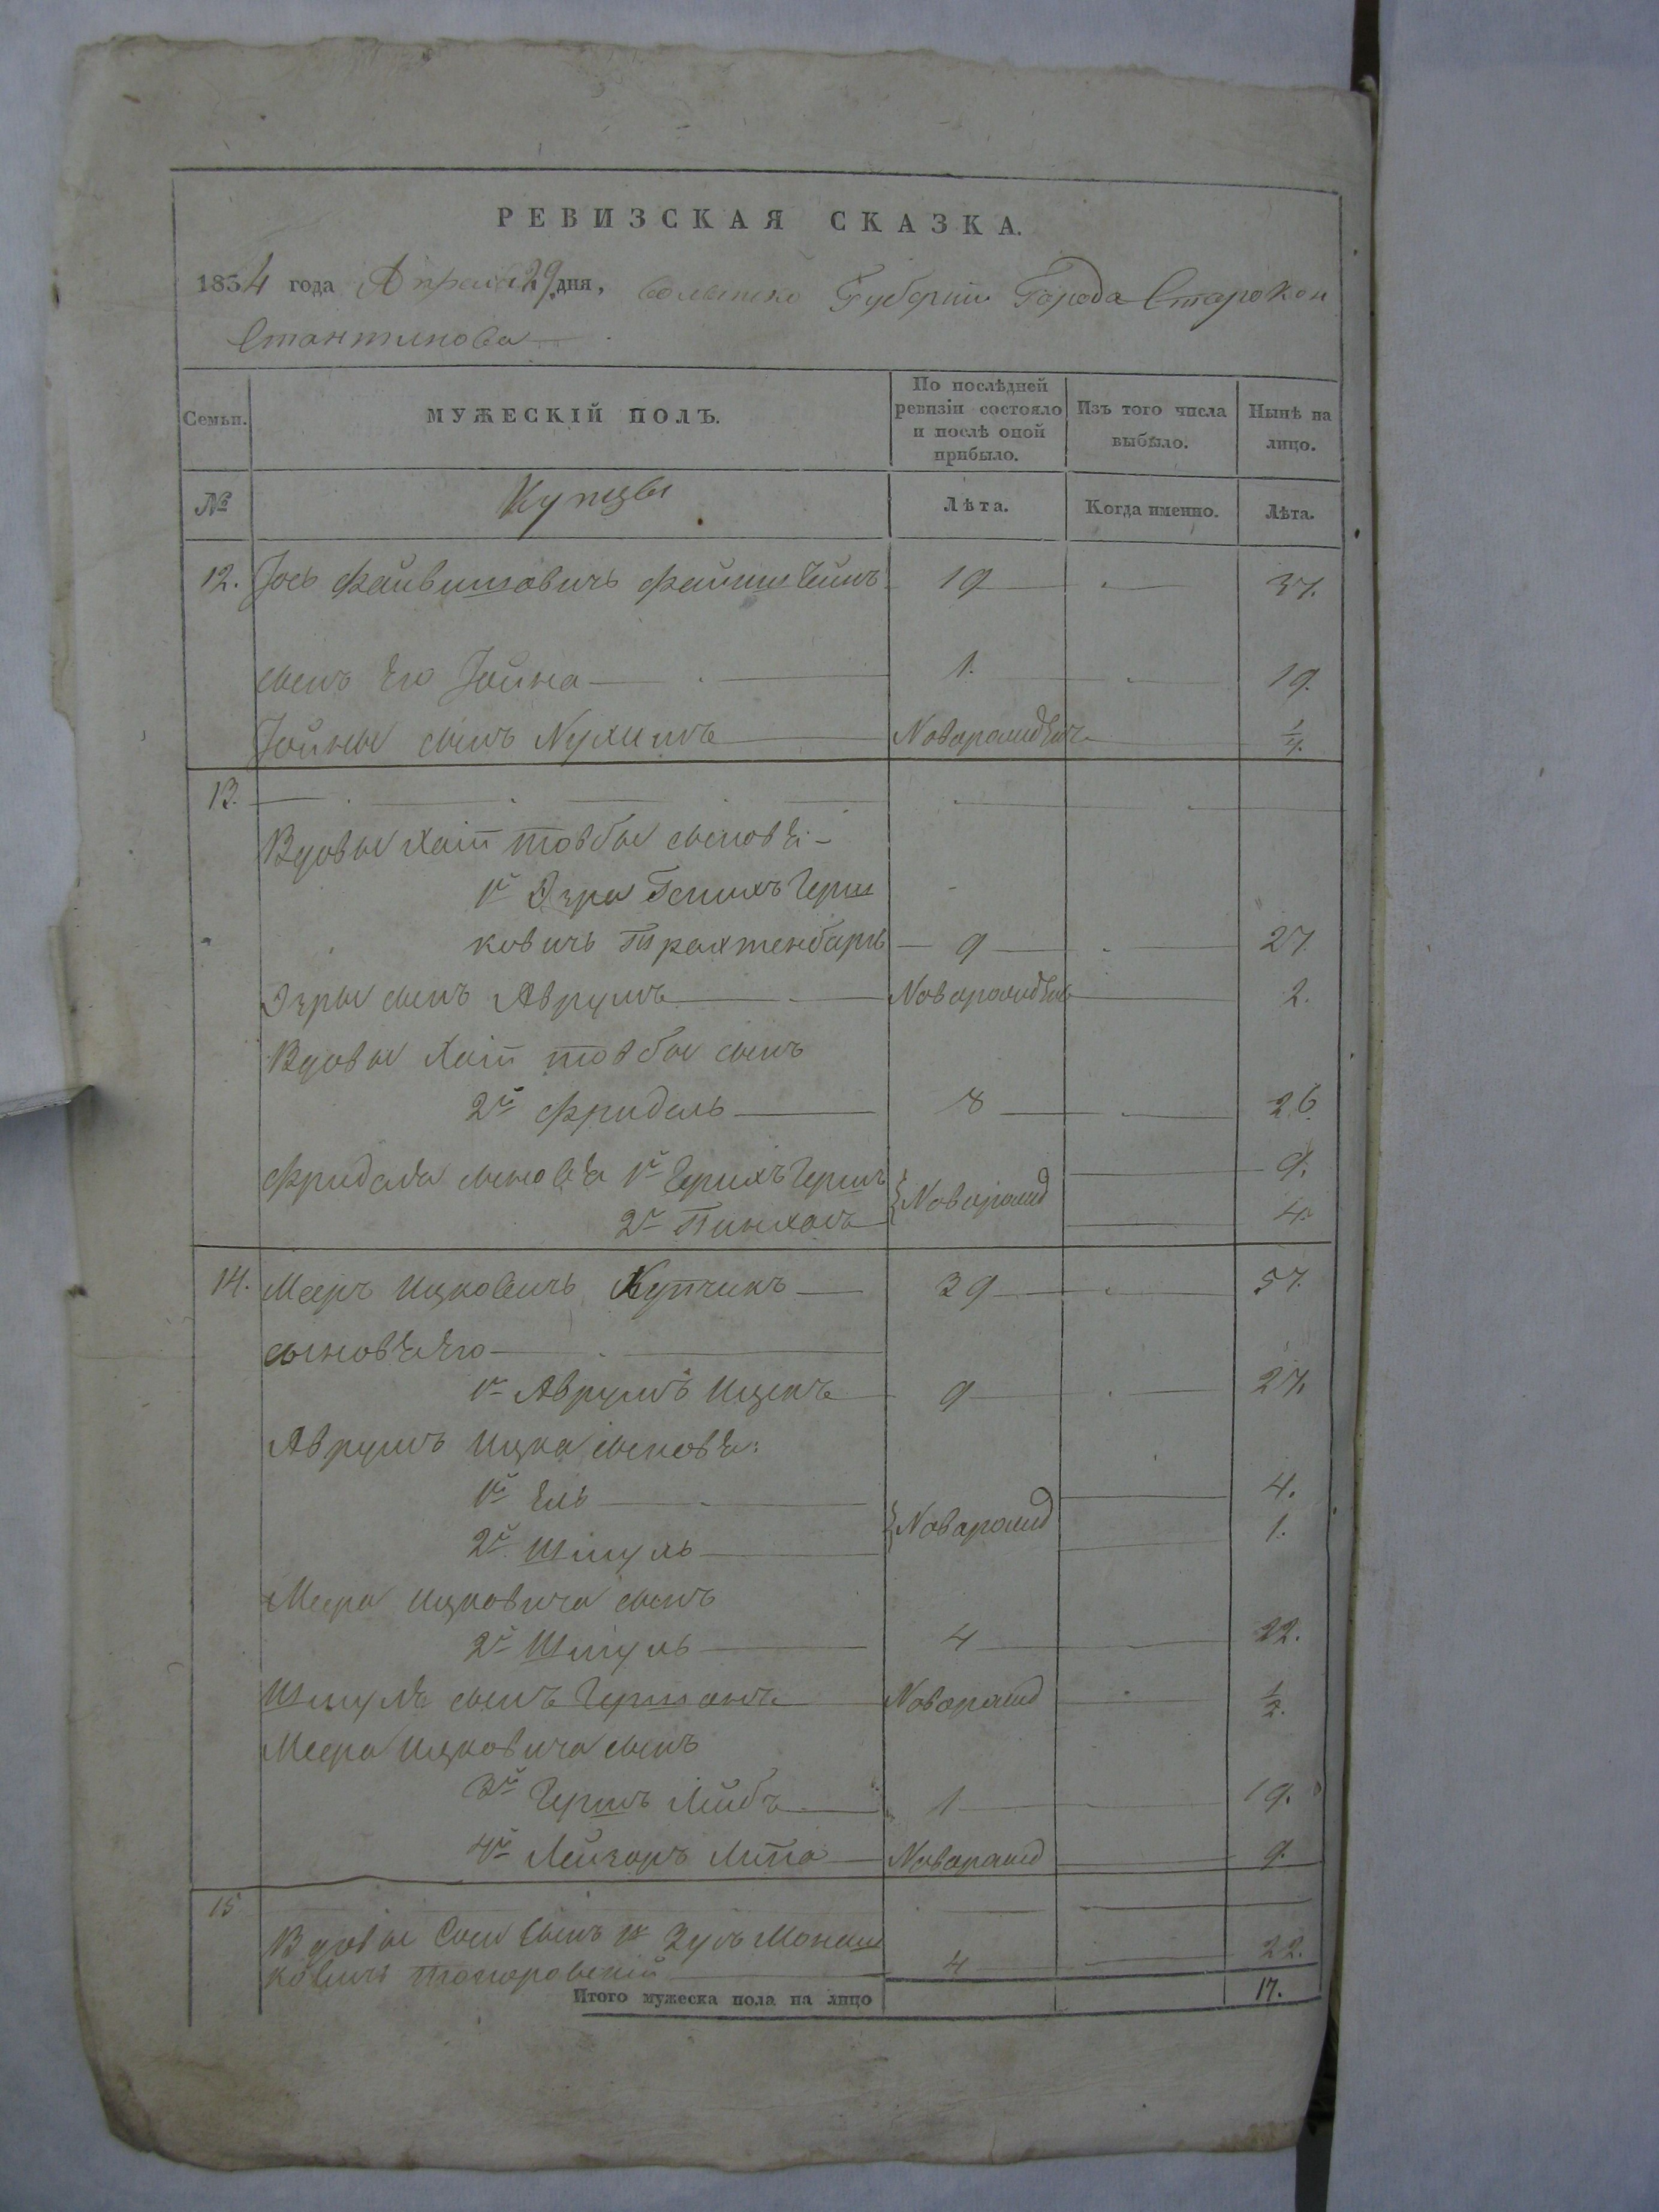 РЕВИЗСКАЯ СКАЗКА.
1854 года Апреля 29 дня, Волынско Губернии Города Старокон
стантинова
Семьи. МУЖЕСКІЙ ПОЛЪ. По послѣдней ревизіи состояло и послѣ оной прибыло. Изъ того числа выбыло. Нынѣ на лицо.
№ Купцы Лѣта. Когда именно. Лѣта.
12. Іось Файвишовичь 19 37.
сынъ Его Іойна 1. 19.
Іойны сынъ Нухимъ Новорожден 1/4.
13.
Вдовы Хаи Товбы сыновя
1й Эзра Герш
ковичь Трахтенбаргъ 9 27.
Эзры сынъ Аврумъ Новорожден 2.
Вдовы Хаи товбы сынъ
2й Фридель 8 26.
Фриделя сыновья 1й Гершъ 9.
2й Пинхасъ Новорожд 4.
14. Мееръ Ицковичь Купчикъ 39 57.
сыновя Его
1й Аврумъ Ицекъ 9 27.
Аврумъ Ицка сыновя:
1й Ель 4.
2й Шмуль Новорожд 1.
Меера Ицковича сынъ
2й Шмуль 4 22.
Шмуля сынъ Новорожд 1/2.
Меера Ицковича сынъ
3й Гершъ Лейбъ 1 19.
4й Лейзоръ Липа Новорожд 9.
15
Вдовы Соси сынъ 1й Зусь Монаш
ковичь Топоровскій 4 22.
Итого мужеска пола на лицо 17.